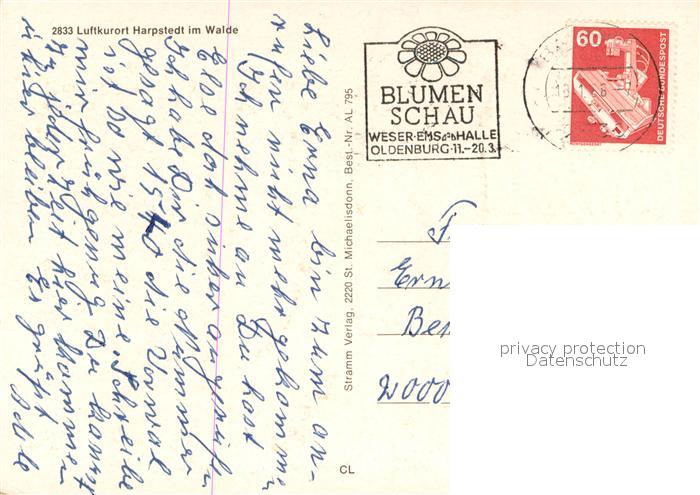 2833 Luftkurort Harpstedt im Walde
Liebe Erna bin zum an-
rufen nicht mehr gekommen
Ich nehme an Du hast
Else doch sicher angerufen
Ich habe Dir die Nummer
gesagt 1540 die Vorwal
ist so wie meine. Schreibe
mir früh genug Du kannst
zu jeder Zeit hier kommen
u hier bleiben Es grüßt
Stramm Verlag, 2220 St. Michaelisdonn, Best.-Nr. AL 795
CL
BLUMEN
SCHAU
WESER-EMS HALLE
OLDENBURG·11.-20.3.
60
DEUTSCHE BUNDESPOST
F
Ern
Be
2000
privacy protection
Datenschutz